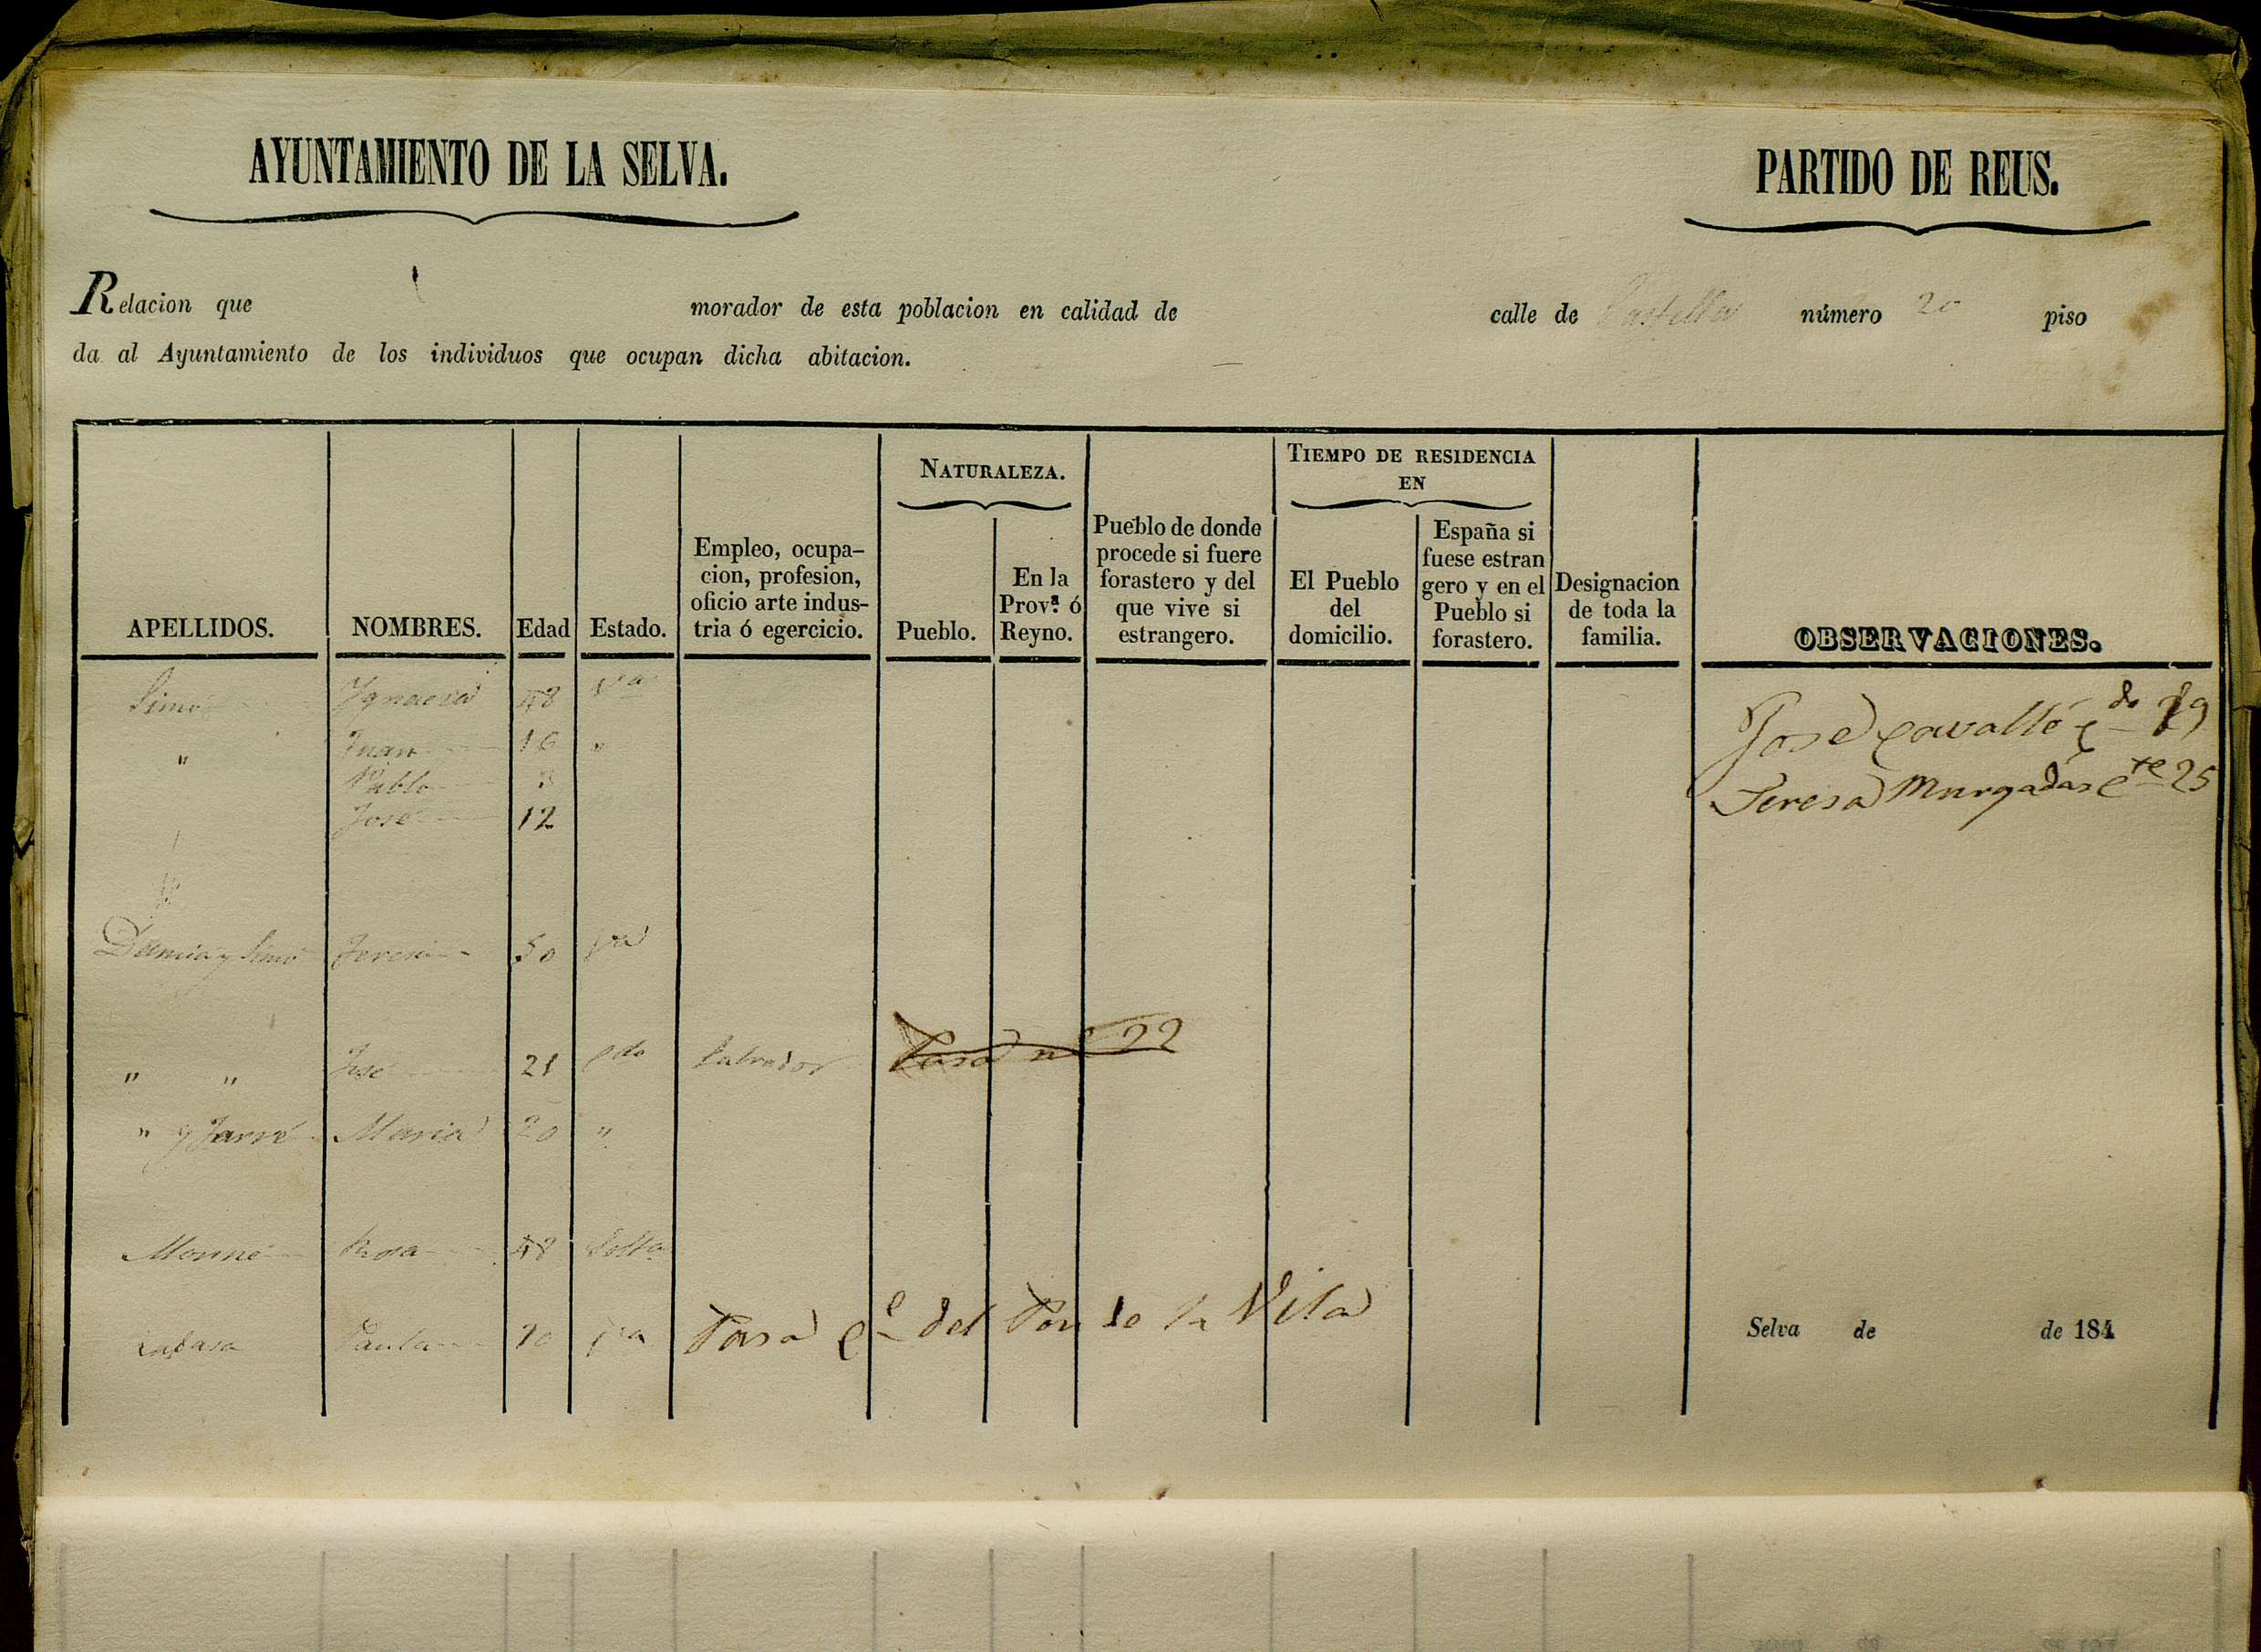 AYUNTAMIENTO DE LA SELVA.
PARTIDO DE REUS.
Relacion que morador de esta poblacion en calidad de calle de número 20 piso
da al Ayuntamiento de los individuos que ocupan dicha abitacion.
APELLIDOS.
NOMBRES.
Edad
Estado.
Empleo, ocupa-
cion, profesion,
oficio arte indus-
tria ó egercicio.
NATURALEZA.
Pueblo.
En la
Prov.ª ó
Reyno.
Pueblo de donde
procede si fuere
forastero y del
que vive si
estrangero.
TIEMPO DE RESIDENCIA
EN
El Pueblo
del
domicilio.
España si
fuese estran
gero y en el
Pueblo si
forastero.
Designacion
de toda la
familia.
OBSERVACIONES.
Simó Ygnacia 48 Vda
" Juan 16 "
Pablo
José 12
Jose Cavallé cdo 29
Teresa Murgadas cte 25
Damia y Simó Teresa 50 Vda
" " José 21 cdo Labrador Pasa nº 22
" y Jarné Maria 20 "
Monné Rosa 48 Solta
Paula Vda Pasa Ce del Pou de la Vila
Selva de de 184